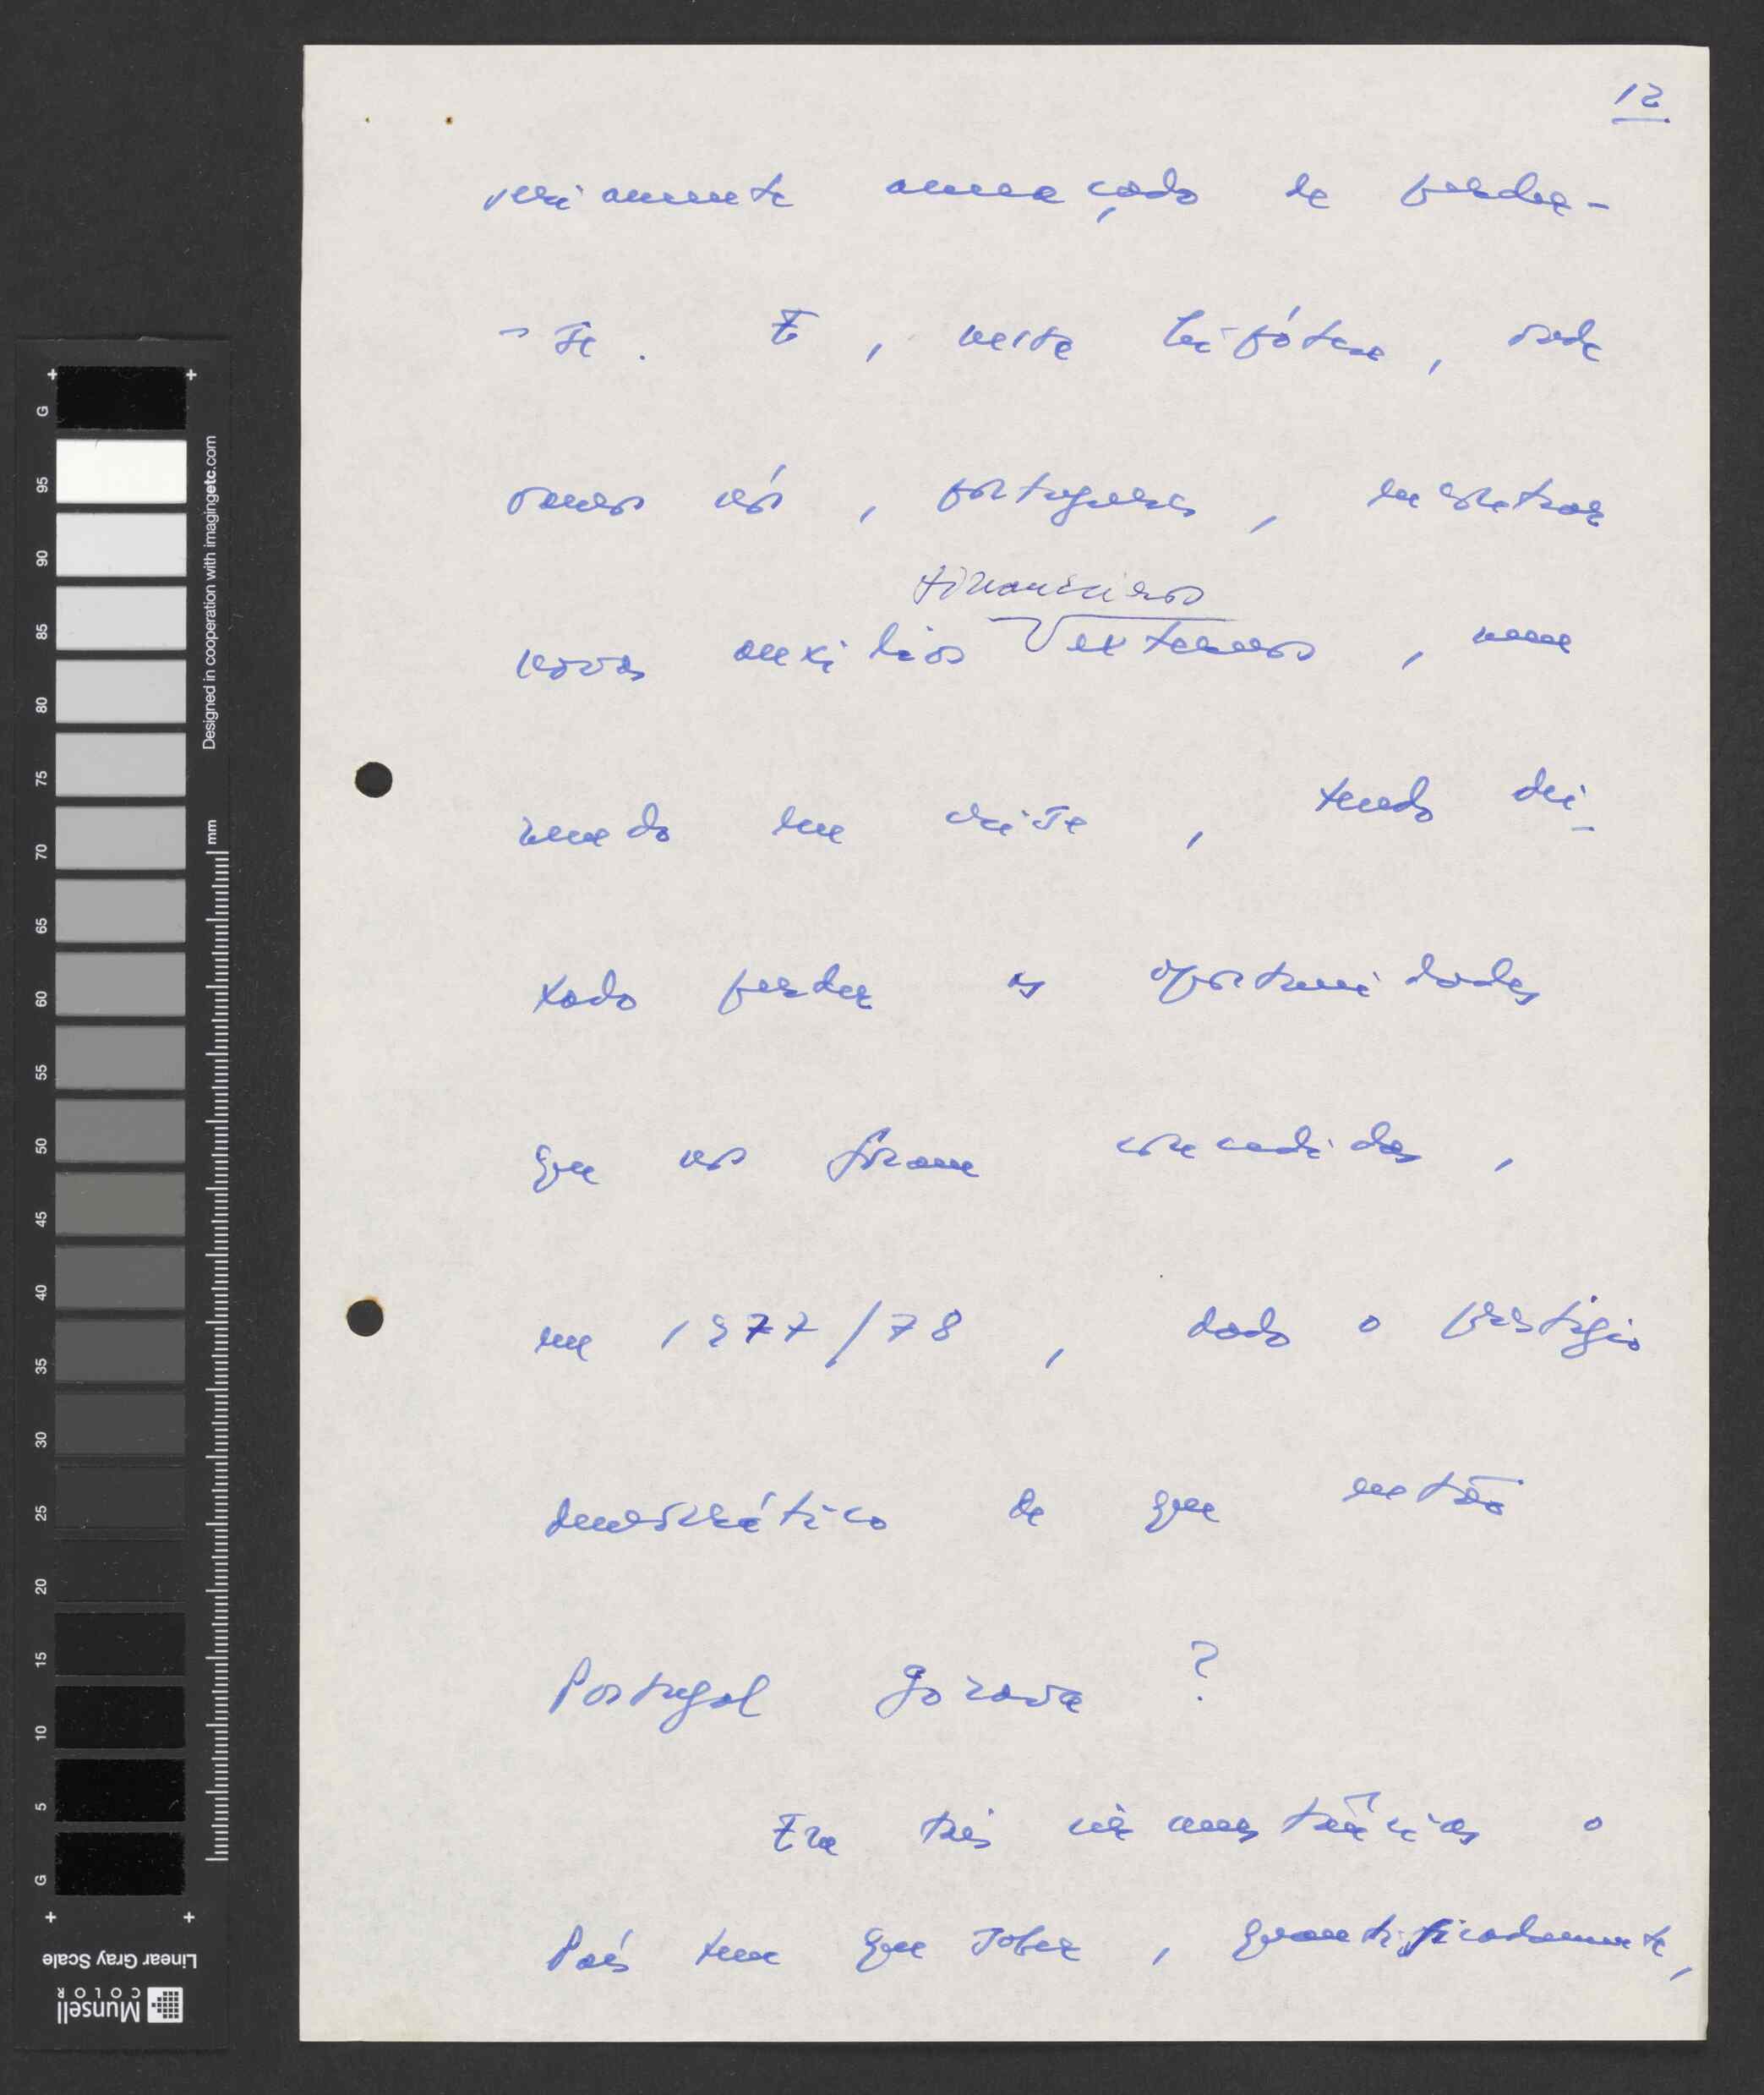 12
seriamente ameaçado de perder-
-se. E, nesta hipótese, onde
vamos nós, portugueses, encontrar
financeiros
novos auxílios externos, num
mundo em crise, tendo dei-
xado perder as oportunidades
que nos foram concedidas,
em 1977/78, dado o prestígio
democrático de que então
Portugal gozava?
Em tais circunstâncias o
País tem que saber, quantificadamente,
G
95
90
85
80
75
70
65
60
55
50
45
40
35
30
25
20
15
10
5
G
Designed in cooperation with imagingetc.com
mm
Linear Gray Scale
Munsell
COLOR